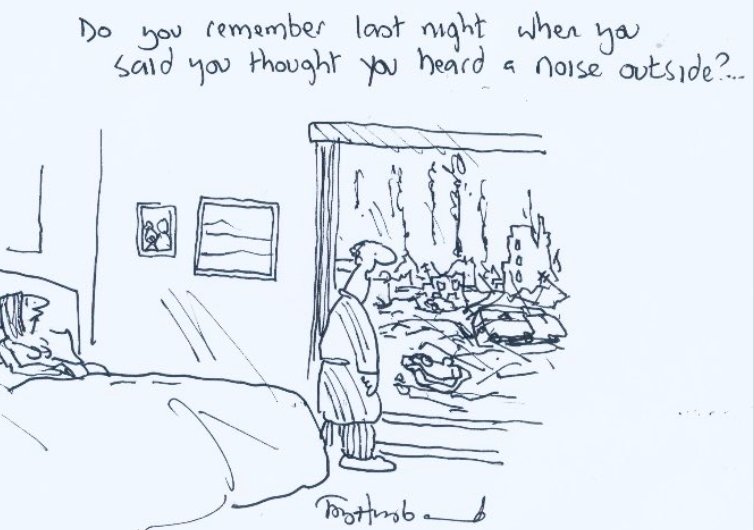 Do you remember last night when you
said you thought you heard a noise outside?...